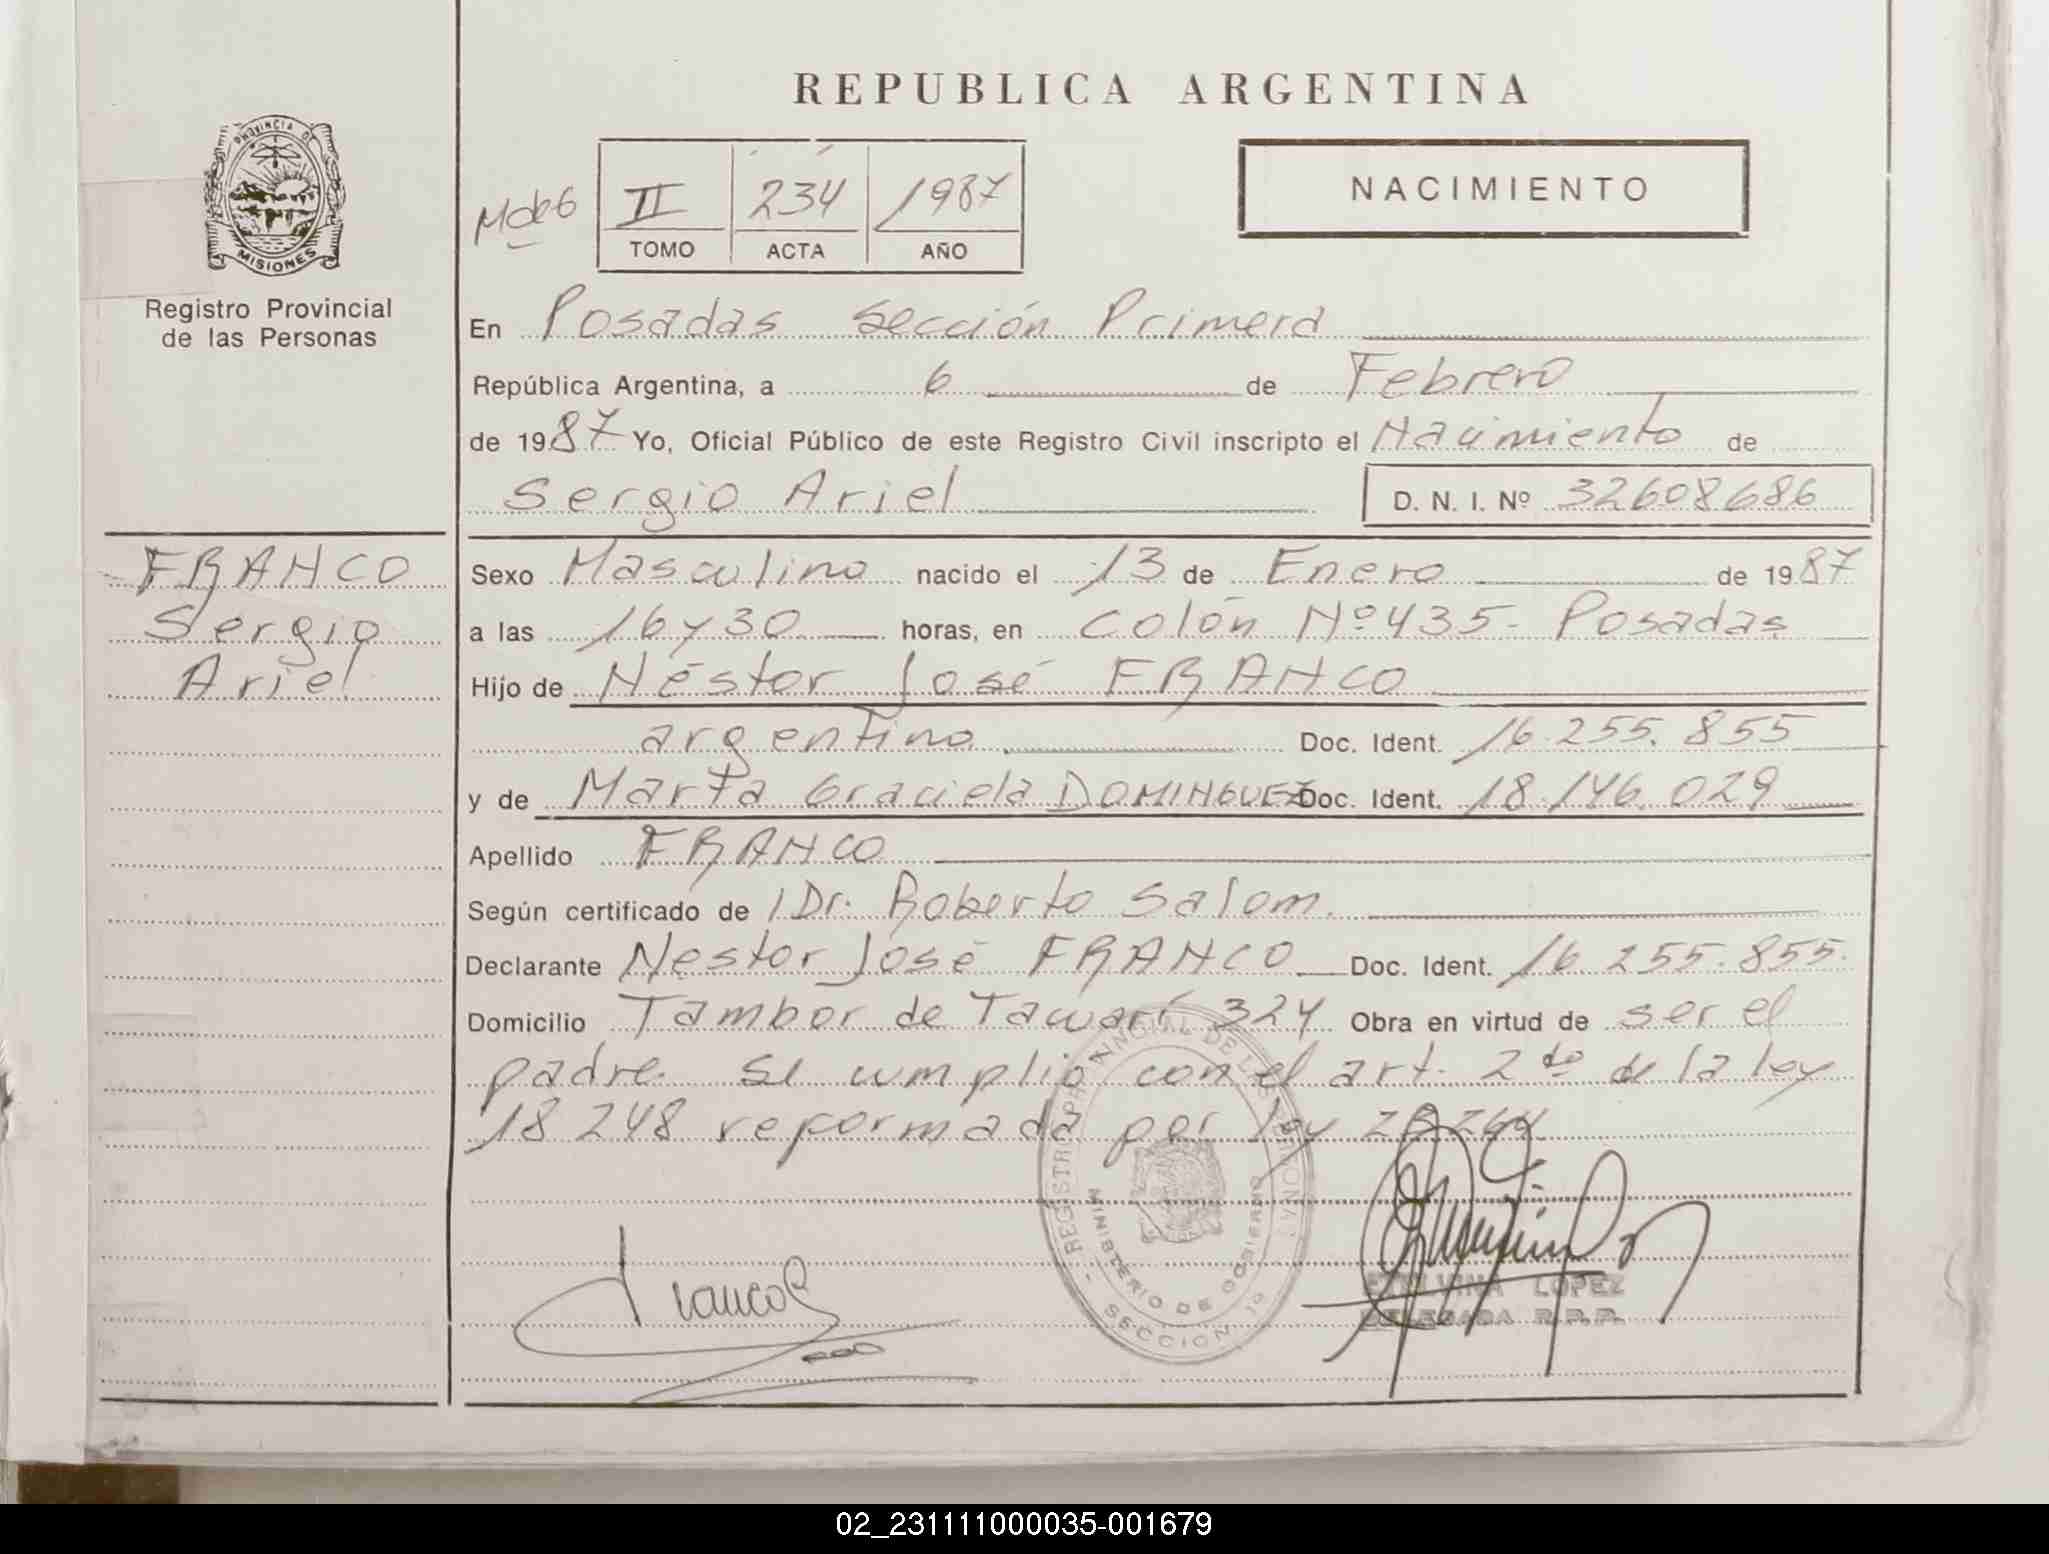 REPUBLICA ARGENTINA
PROVINCIA DE
MISIONES
Registro Provincial
de las Personas
NACIMIENTO
II 234 1987
TOMO ACTA AÑO
En Posadas Sección Primera
República Argentina, a 6 de Febrero
de 1987 Yo, Oficial Público de este Registro Civil inscripto el Nacimiento de
Sergio Ariel D. N. I. Nº 32608686
FRANCO
Sergio
Ariel
Sexo Masculino nacido el 13 de Enero de 1987
a las 16 y 30 horas, en Colón Nº 435- Posadas
Hijo de Néstor José FRANCO
argentino Doc. Ident. 16.255.855
y de Marta Graciela DOMINGUEZ Doc. Ident. 18.146.029
Apellido FRANCO
Según certificado de Dr. Roberto Salom.
Declarante Nestor José FRANCO Doc. Ident. 16.255.855.
Domicilio Tambor de Tacuarí 324 Obra en virtud de ser el
padre. Se cumplió con el art. 2do de la ley
18.248 reformada por ley
REGISTRO PROVINCIAL DE LAS PERSONAS
MINISTERIO DE GOBIERNO
SECCION 1ª
Franco
LOPEZ
DELEGADA R.P.P.
02_231111000035-001679